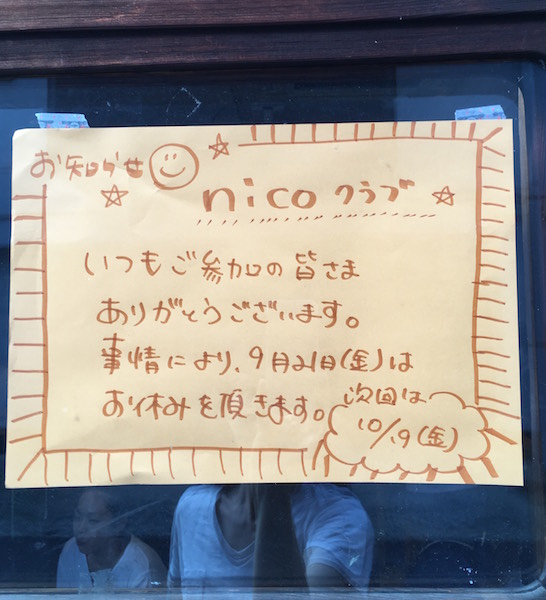 お知らせ
nico クラブ
いつもご参加の皆さま
ありがとうございます。
事情により、9月21日(金)は
お休みを頂きます。
次回は
10/19(金)